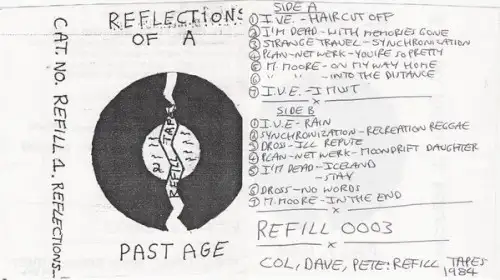 CAT. NO. REFILL 1. REFLECTIONS...
REFLECTIONS
OF A
REFILL TAPE
PAST AGE
SIDE A
① I.V.E. - HAIRCUT OFF
② I'M DEAD - WITH MEMORIES GONE
③ STRANGE TRAVEL - SYNCHRONIZATION
④ PLAN-NET WORK - YOU'RE SO PRETTY
⑤ M. MOORE - ON MY WAY HOME
⑥ " " - INTO THE DISTANCE
⑦ I.V.E. - I MUST
SIDE B
① I.V.E - RAIN
② SYNCHRONIZATION - RECREATION REGGAE
③ DROSS - ILL REPUTE
④ PLAN-NET WORK - MOONDRIFT DAUGHTER
⑤ I'M DEAD - ICELAND
- STAY
⑥ DROSS - NO WORDS
⑦ M. MOORE - IN THE END
REFILL 0003
COL, DAVE, PETE: REFILL TAPES
1984